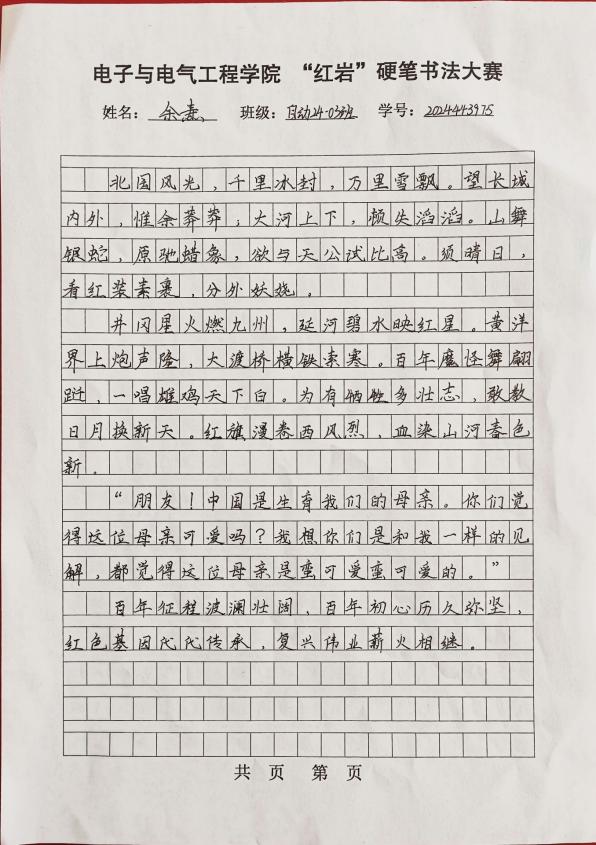 电子与电气工程学院 “红岩”硬笔书法大赛
姓名： 余 班级：自动24-03班 学号：2024443975
北国风光，千里冰封，万里雪飘。望长城
内外，惟余莽莽；大河上下，顿失滔滔。山舞
银蛇，原驰蜡象，欲与天公试比高。须晴日，
看红装素裹，分外妖娆。
井冈星火燃九州，延河碧水映红星。黄洋
界上炮声隆，大渡桥横铁索寒。百年魔怪舞翩
跹，一唱雄鸡天下白。为有牺牲多壮志，敢教
日月换新天。红旗漫卷西风烈，血染山河春色
新。
“朋友！中国是生育我们的母亲。你们觉
得这位母亲可爱吗？我想你们是和我一样的见
解，都觉得这位母亲是蛮可爱蛮可爱的。”
百年征程波澜壮阔，百年初心历久弥坚，
红色基因代代传承，复兴伟业薪火相继。
共 页 第 页